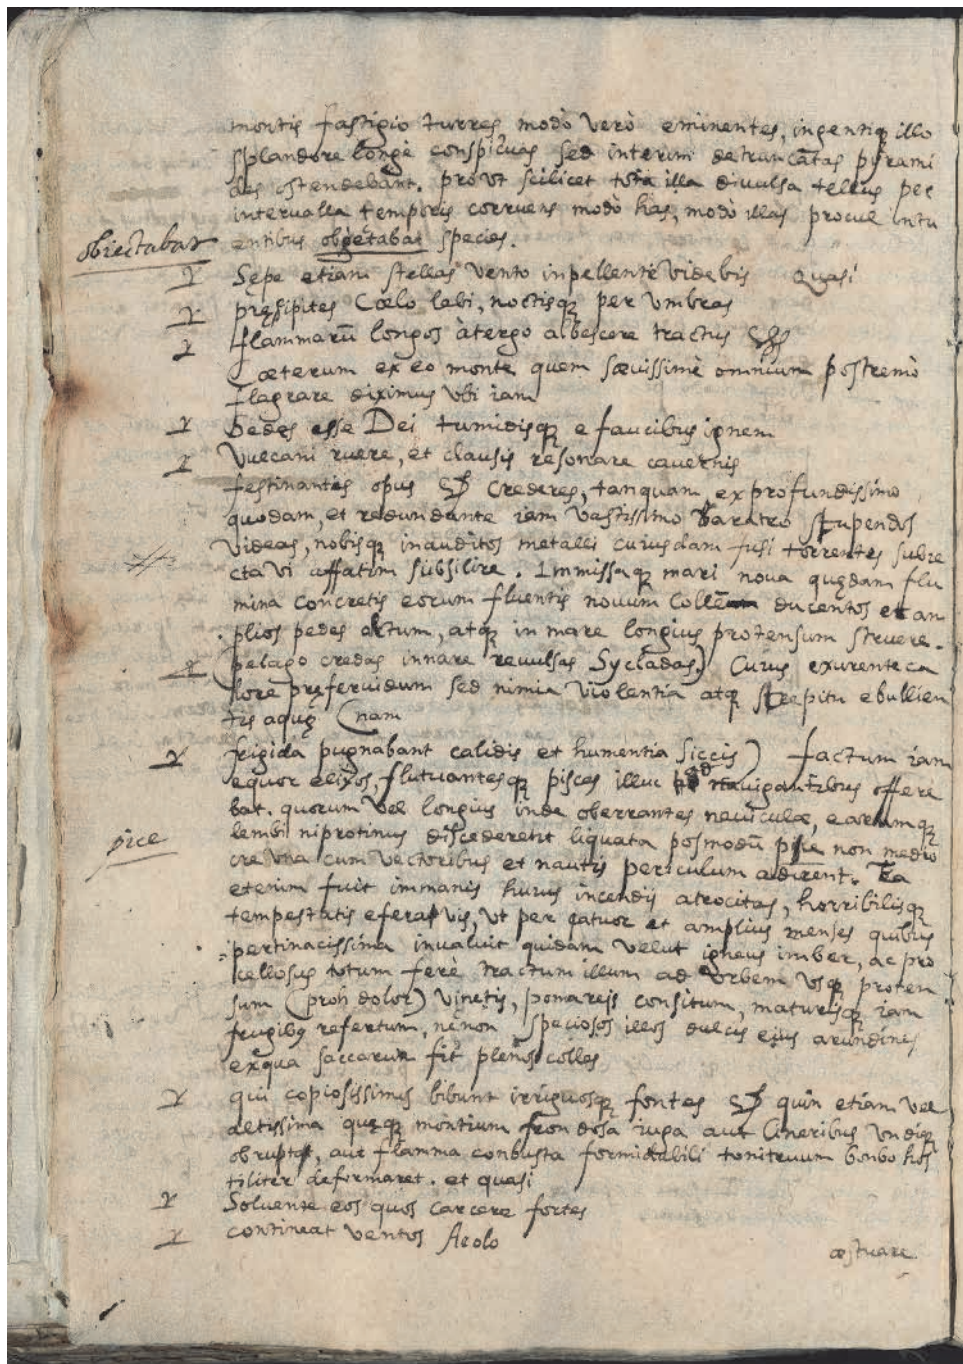 montis fastigio turres, modò verò eminentes, ingentiq; illo
splandore longè conspicuas sed interim detruncatas pyrami
des ostendebant. provt scilicet tota illa divulsa tellus per
intervalla temporis corruens modò has, modò illas procul intu
obiectabat
entibus obgetabat species.
Sepe etiam stellas vento inpellente videbis quasi
pręsipites Cœlo labi, noctisq; per vmbras
flammarũ longos à tergo albescere tractus
Cæterum ex eo monte quem sævissimè omnium postremò
flagrare diximus vbi iam
Sedes esse Dei tumidisq; e faucibus ignem
Vulcani ruere, et clausis resonare cavernis
festinantes opus crederes, tanquam ex profundissimo
quodam, et redundante iam vastissimo baratro stupendos
videas, nobisq; inauditos metalli cuiusdam fusi torrentes subre
cta vi affatim subsilire. Immissaq; mari nova quędam flu
mina concretis eorum fluentis novum Collem ducentos et am
plios pedes altum, atq; in mare longius protensum struere.
(pelago credas innare revulsas Sycladas) Cuius exurente ca
lore pręfervidum sed nimia violentia atq; strepitu ebullien
tis aquę (nam
frigida pugnabant calidis et humentia siccis) factum iam
equor elixos, flutuantesq; pisces illuc ad navigantibus offere
bat. quorum vel longius inde oberrantes naviculæ, earumq;
pice
lembi niprotinus discederent liquata posmodũ pise non medio
cre vna cum vectoribus et nautis periculum adirent. Ea
etenim fuit immanis huius incendii atrocitas, horribilisq;
tempestatis efera vis, vt per catuor et amplius menses quibus
pertinacissima invaluit quidam velut igneus imber, ac pro
cellosus totum ferè tractum illum ad vrbem vsq; proten
sum (proh dolor) vinetis, pomareis consitum, maturisq; iam
frugibus refertum, nenon speciosos illos dulcis eius arundines
ex qua saccarum fit plenos colles
qui copiosissimis bibunt irriguosq; fontes quin etiam vel
altissima quęq; montium frondosa iuga aut Cineribus vndiq;
obrupta, aut flamma conbusta formidabili tonitruum bonbo hos
tiliter deformaret. et quasi
Solvente eos quos carcere fortes
contineat ventos Aeolo
æstuare